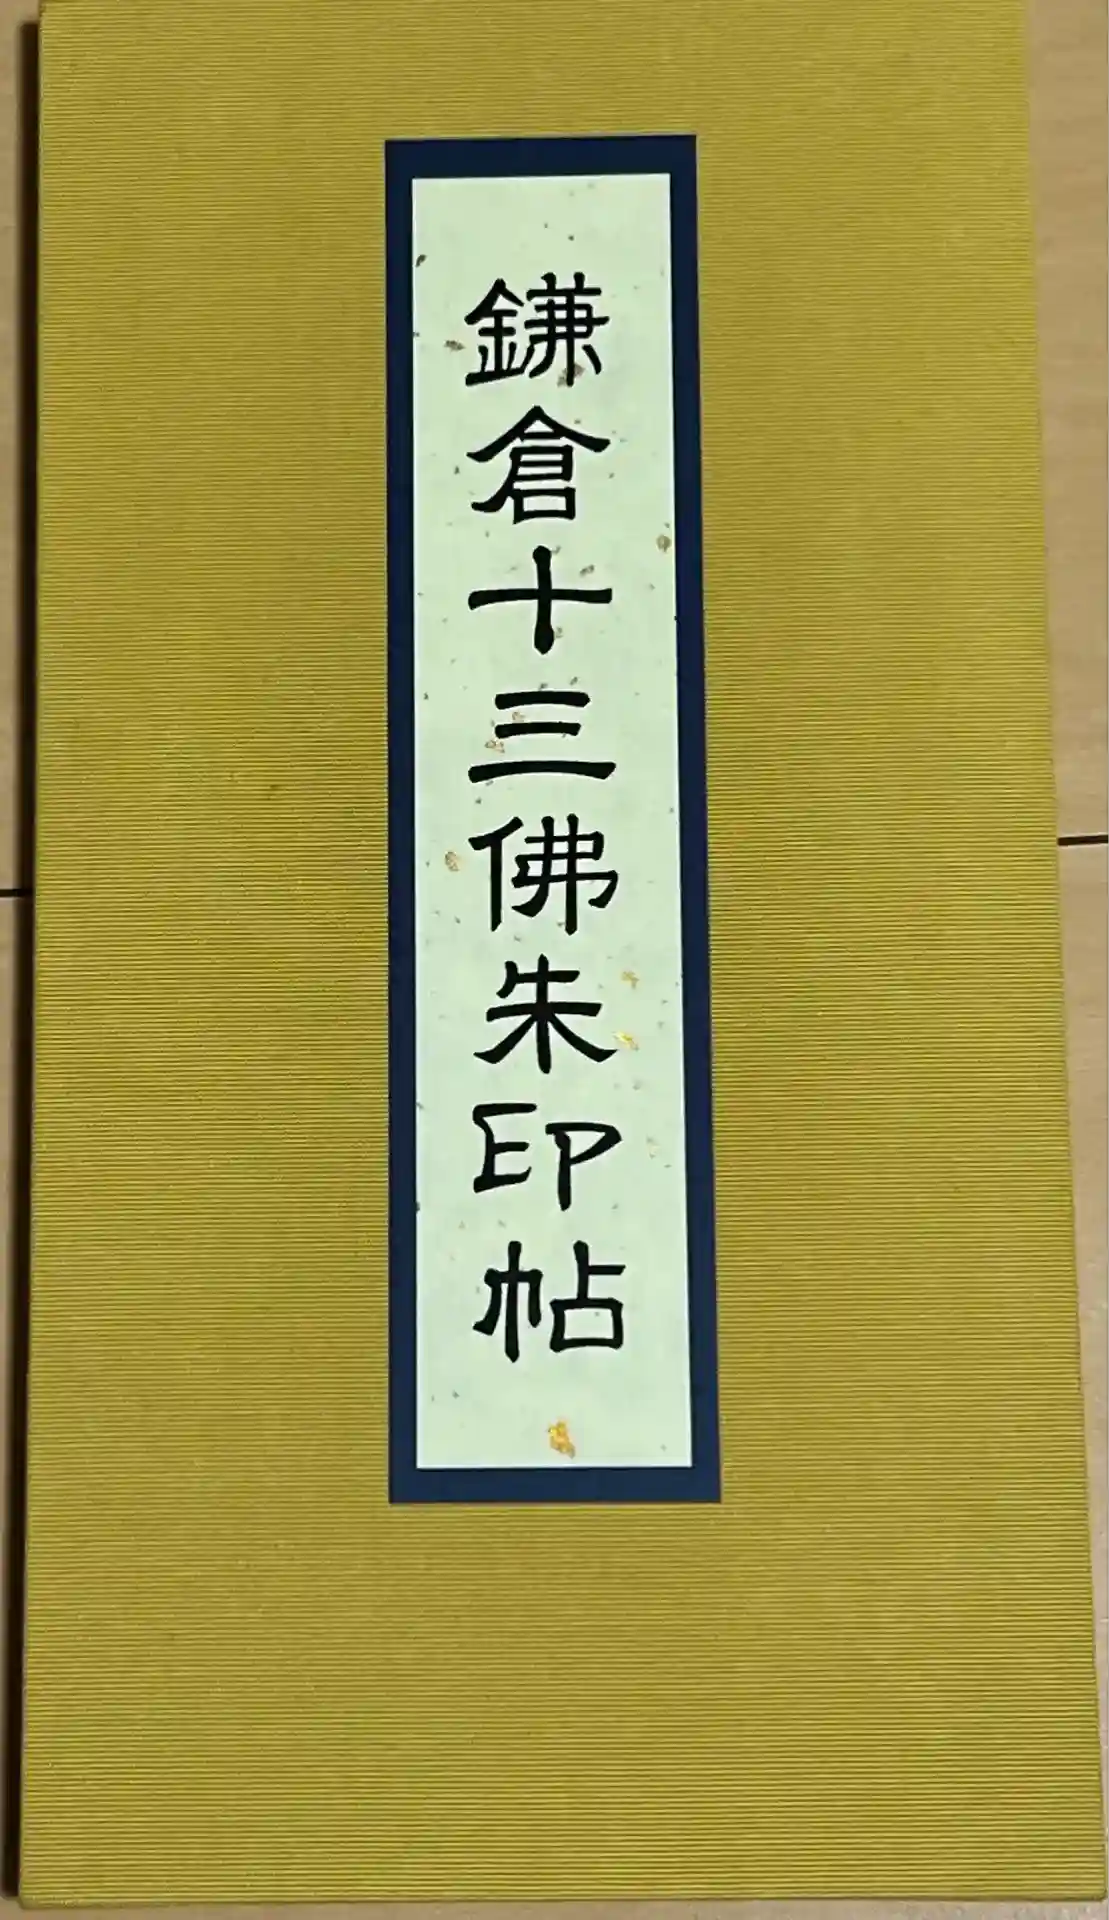 鎌倉十三佛朱印帖